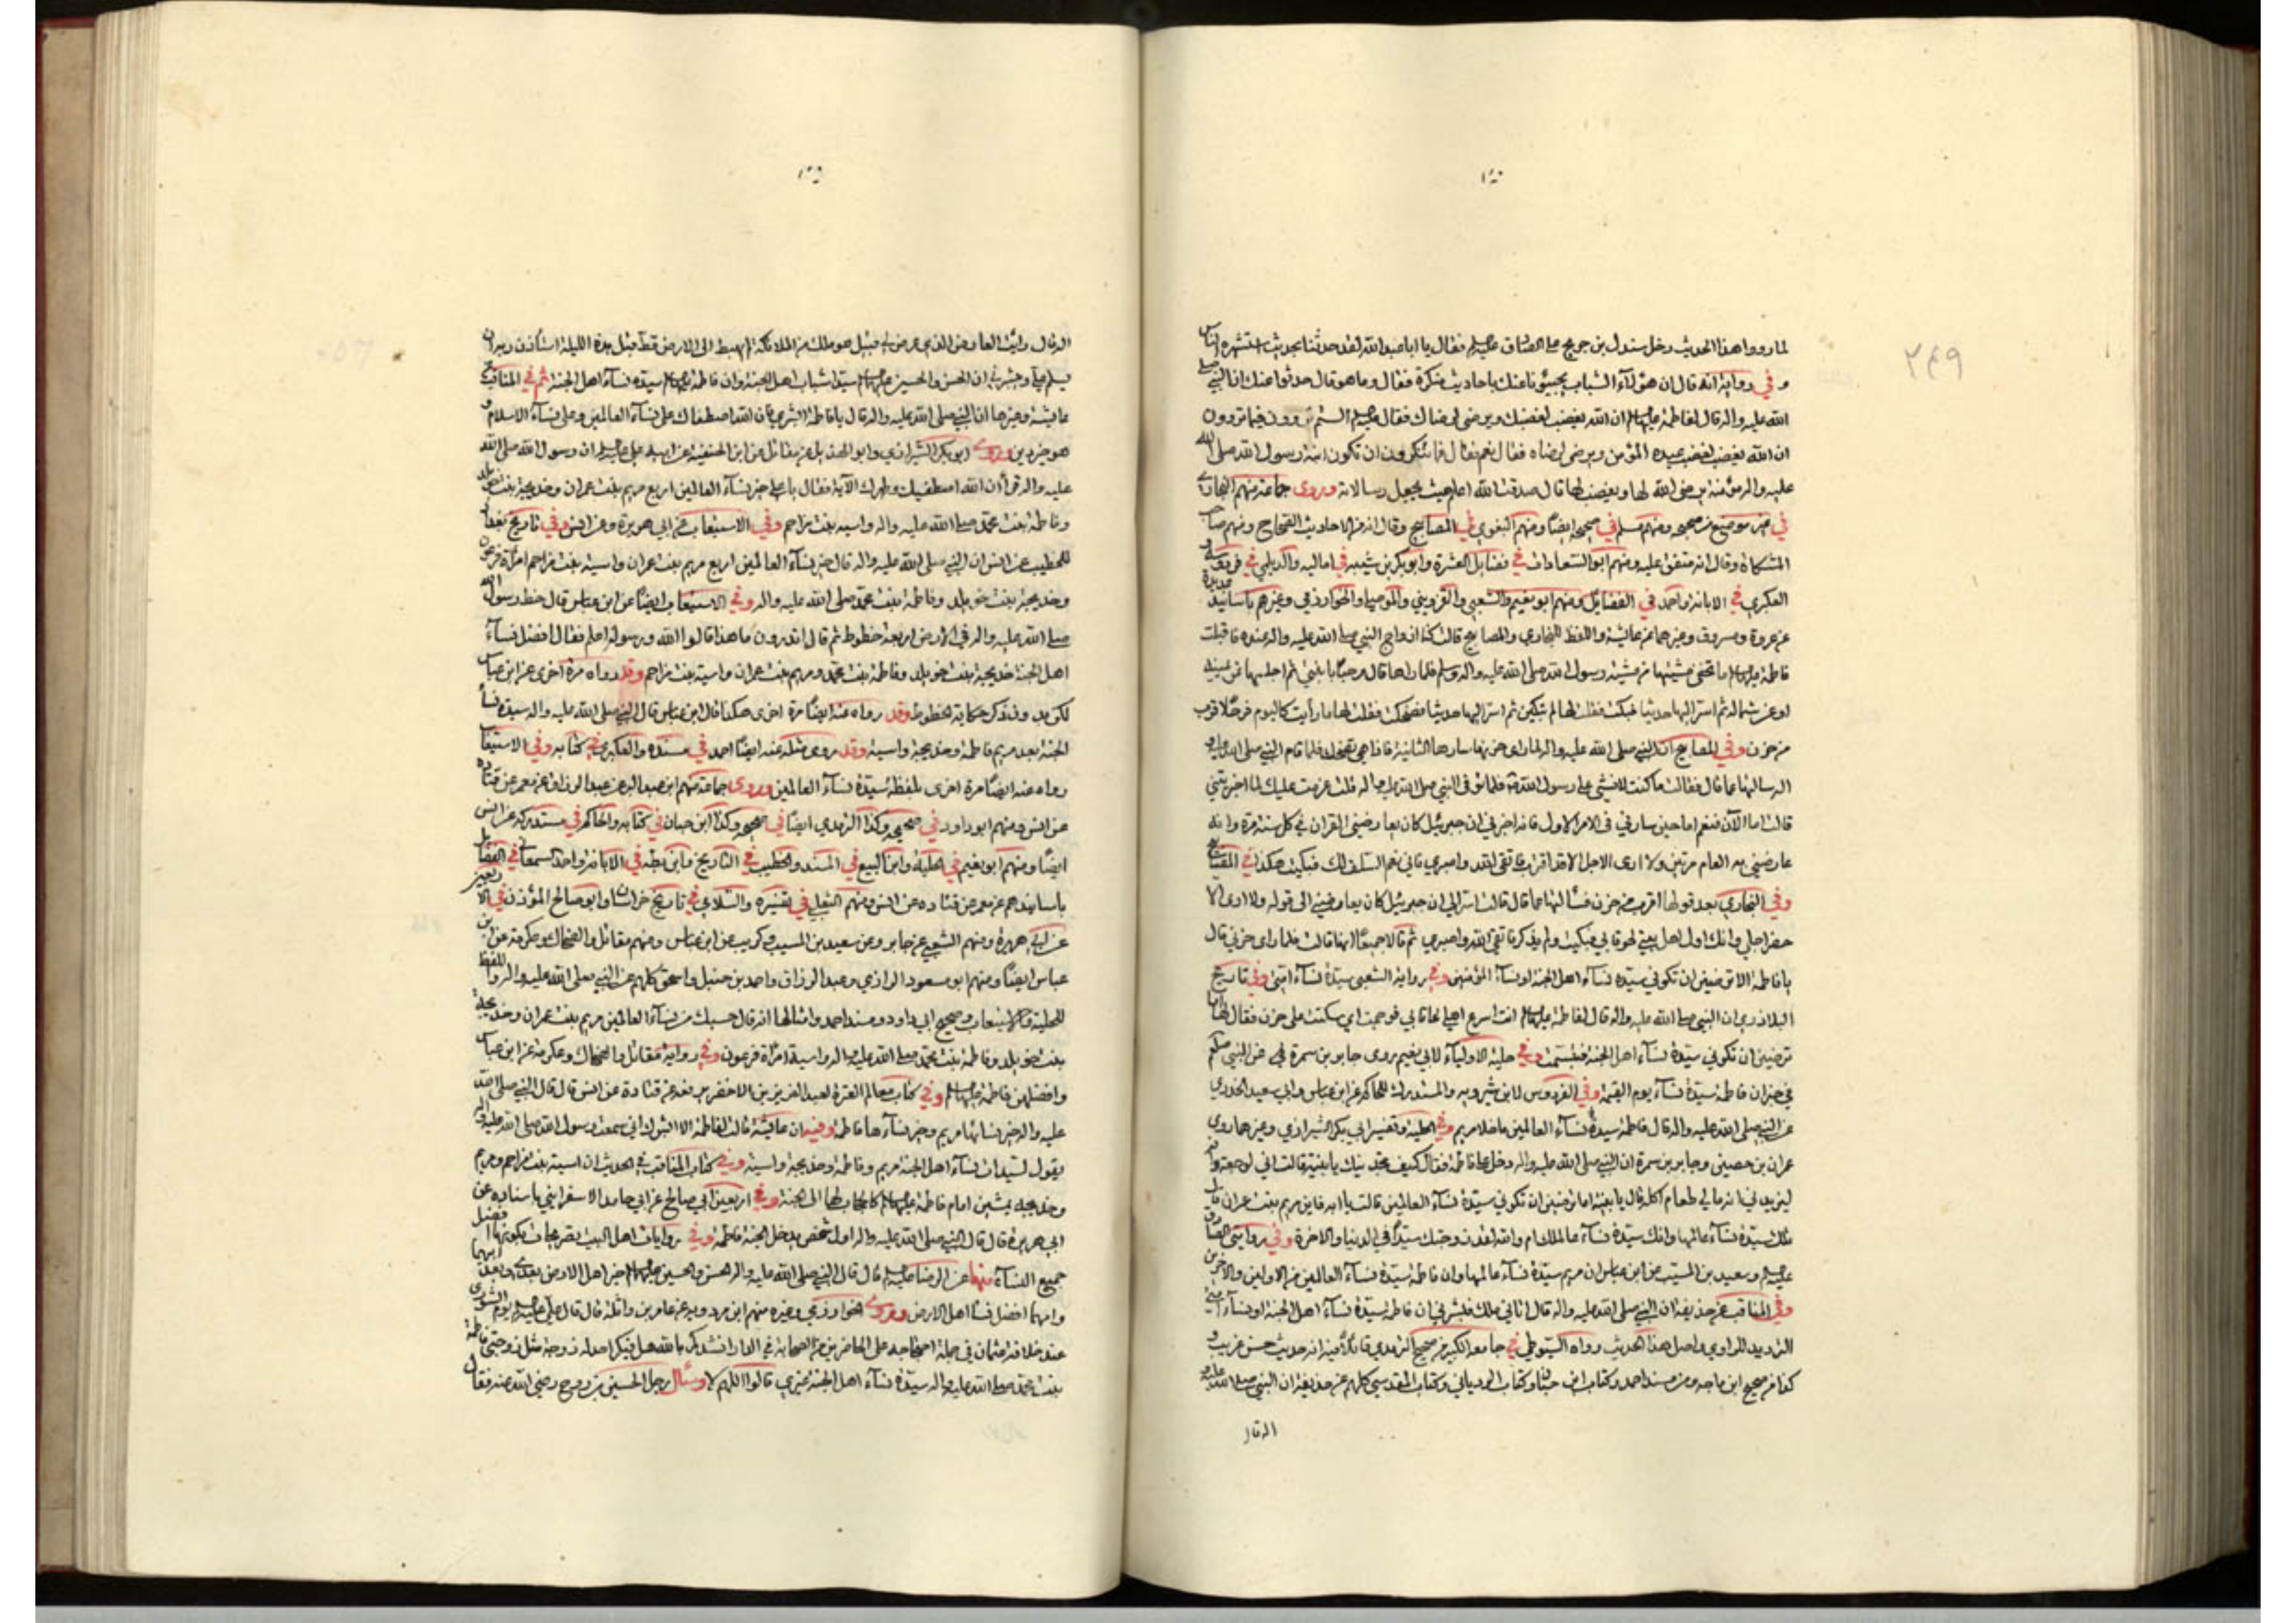 ٢٤٩
لما رووا هذا الحديث دخل سندل بن جريج على الصادق عليه فقال يا ابا عبد الله لقد حدثنا بحديث استشهره الناس
وفي رواية انه قال ان هؤلاء الشباب يجيئونا عنك باحاديث منكرة فقال وما هو قال حدثوا عنك ان النبي صلى
الله عليه واله قال لفاطمة ان الله يغضب لغضبك ويرضى لرضاك فقال عليه الستم تروون فيما تروون
ان الله يغضب لغضب عبده المؤمن ويرضى لرضاه فقال نعم فقال فما تنكرون ان تكون ابنة رسول الله صلى الله
عليه واله مؤمنة يرضى الله لها ويغضب لها قال صدقت الله اعلم حيث يجعل رسالاته وروى جماعة منهم البخاري
في غير موضع من صحيحه ومنهم مسلم في صحيحه ايضا ومنهم البغوي في المصابيح وقال انه من الاحاديث الصحاح ومنهم صاحب
المشكاة وقال انه متفق عليه ومنهم ابو السعادات في فضايل العشرة وابو بكر بن شيبه في اماليه والديلمي في فردوسه
العكبري في الابانة واحمد في الفضايل ومنهم ابو نعيم والشعبي والقزويني والموصلي والخوارزمي وغيرهم باسانيد عديدة
عن عروة ومسروق وغيرهما عن عائشة واللفظ للبخاري والمصابيح قالت كنا ازواج النبي صلى الله عليه واله عنده فاقبلت
فاطمة ما تخفى مشيتها من مشية رسول الله صلى الله عليه واله وسلم فلما راها قال مرحبا يا بنتي ثم اجلسها عن يمينه
او عن شماله ثم اسر اليها حديثا فبكت فقلت لها لم تبكين ثم اسر اليها حديثا فضحكت فقلت لها ما رأيت كاليوم فرحا اقرب
من حزن وفي المصابيح ان النبي صلى الله عليه واله لما راى حزنها سارها الثانية فاذا هي تضحك فلما قام النبي صلى الله عليه و
اله سالتها عما قال فقالت ما كنت لافشي على رسول الله سره فلما توفي النبي صلى الله عليه واله قلت عزمت عليك لما اخبرتني
قالت اما الآن فنعم اما حين سارني في الامر الاول فانه اخبرني ان جبرئيل كان يعارضني القران في كل سنة مرة وانه
عارضني به العام مرتين ولا ارى الاجل الا قد اقترب فاتقي الله واصبري فاني نعم السلف لك فبكيت هكذا في
وفي البخاري بعد قولها اقرب من حزن فسألتها عما قال قالت اسر الي ان جبرئيل كان يعارضني الى قوله ولا ارى الا
حضر اجلي وانك اول اهل بيتي لحوقا بي فبكيت ولم يذكر فاتقي الله واصبري ثم قالا جميعا انها قالت فلما راى حزني قال
يا فاطمة الا ترضين ان تكوني سيدة نساء اهل الجنة او نساء المؤمنين وفي رواية الشعبي سيدة نساء امتي وفي تاريخ
البلاذري ان النبي صلى الله عليه واله قال لفاطمة انت اسرع اهلي لحاقا بي فوجمت اي سكتت على حزن فقال لها اما
ترضين ان تكوني سيدة نساء اهل الجنة فتبسمت وفي حلية الاولياء لابي نعيم روى جابر بن سمرة عن النبي صلعم
في خبر ان فاطمة سيدة نساء يوم القيمة وفي الفردوس لابن شيرويه والمستدرك للحاكم عن ابن عباس وابي سعيد الخدري
عن النبي صلى الله عليه واله قال فاطمة سيدة نساء العالمين ما خلا مريم وفي الحلية وتفسير ابي بكر الشيرازي وغيرهما روى
عمران بن حصين وجابر بن سمرة ان النبي صلى الله عليه واله دخل على فاطمة فقال كيف تجدينك يا بنية قالت اني لوجعة وانه
ليزيدني انه مالي طعام اكله قال يا بنية اما ترضين ان تكوني سيدة نساء العالمين قالت يا ابه فاين مريم بنت عمران قال
تلك سيدة نساء عالمها وانك سيدة نساء عالمك ام والله لقد زوجتك سيدا في الدنيا والاخرة وفي روايتي الصادق
عليه وسعيد بن المسيب عن ابن عباس ان مريم سيدة نساء عالمها وان فاطمة سيدة نساء العالمين من الاولين والاخرين
وفي المناقب عن حذيفة ان النبي صلى الله عليه واله قال اتاني ملك فبشرني ان فاطمة سيدة نساء اهل الجنة او نساء امتي
الترديد للراوي واصل هذا الحديث رواه السيوطي في جامعه الكبير من صحيح الترمذي قائلا فيه انه حديث حسن غريب و
كذا من صحيح ابن ماجه ومن مسند احمد وكتاب ابن حبان وكتاب الروياني وكتاب المقدسي كلهم عن حذيفة ان النبي صلى الله عليه و
اله قال
اله قال رايت العارض الذي عرض لي قبيل هو ملك من الملائكة لم يهبط الى الارض قط قبل هذه الليلة استأذن ربه ان
يسلم علي وبشرني ان الحسن والحسين سيدا شباب اهل الجنة وان فاطمة سيدة نساء اهل الجنة ثم في المناقب عن
عائشة وغيرها ان النبي صلى الله عليه واله قال يا فاطمة ابشري فان الله اصطفاك على نساء العالمين وعلى نساء الاسلام و
هو خير دين وروى ابو بكر الشيرازي وابو الهذيل عن مقاتل عن ابن الحنفية عن ابيه علي ان رسول الله صلى الله
عليه واله قرأ ان الله اصطفيك وطهرك الآية فقال يا علي خير نساء العالمين اربع مريم بنت عمران وخديجة بنت خويلد
وفاطمة بنت محمد صلى الله عليه واله واسيه بنت مزاحم وفي الاستيعاب عن ابي هريرة وعن انس وفي تاريخ بغداد
للخطيب عن انس ان النبي صلى الله عليه واله قال خير نساء العالمين اربع مريم بنت عمران واسية بنت مزاحم امرأة فرعون
وخديجة بنت خويلد وفاطمة بنت محمد صلى الله عليه واله وفي الاستيعاب ايضا عن ابن عباس قال خط رسول الله
صلى الله عليه واله في الارض اربعة خطوط ثم قال اتدرون ما هذا قالوا الله ورسوله اعلم فقال افضل نساء
اهل الجنة خديجة بنت خويلد وفاطمة بنت محمد ومريم بنت عمران واسية بنت مزاحم وقد رواه مرة اخرى عن ابن عباس
لكن من دون ذكر حكاية الخطوط وقد رواه عنه ايضا مرة اخرى هكذا قال ابن عباس قال النبي صلى الله عليه واله سيدة نساء
الجنة بعد مريم فاطمة وخديجة واسية وقد روى مثله عنه ايضا احمد في مسنده والعكبري في كتابه وفي الاستيعاب
رواه عنه ايضا مرة اخرى بلفظة سيدة نساء العالمين وروى جماعة منهم ابن عبد البر عن عبد الرزاق عن معمر عن قتادة
عن انس ومنهم ابو داود في صحيحه وكذا الترمذي ايضا في صحيحه وكذا ابن حبان في كتابه والحاكم في مستدركه عن انس
ايضا ومنهم ابو نعيم في الحلية وابن البيع في المسند والخطيب في التاريخ وابن بطه في الابانة واحمد السمعاني في الفضايل
باسانيدهم عن معمر عن قتاده عن انس ومنهم الثعلبي في تفسيره والسلامي في تاريخ خراسان وابو صالح المؤذن في الاربعين
عن ابي هريرة ومنهم الشعبي عن جابر وعن سعيد بن المسيب وكريب عن ابن عباس ومنهم مقاتل والضحاك وعكرمة عن ابن
عباس ايضا ومنهم ابو مسعود الرازي وعبد الرزاق واحمد بن حنبل واسحق كلهم عن النبي صلى الله عليه واله واللفظ
للحلية والاستيعاب وصحيح ابي داود ومسند احمد وامثالها انه قال حسبك من نساء العالمين مريم بنت عمران وخديجة
بنت خويلد وفاطمة بنت محمد صلى الله عليه واله واسية امرأة فرعون وفي رواية مقاتل والضحاك وعكرمة عن ابن عباس
وافضلهن فاطمة وفي كتاب معالم العترة لعبد العزيز بن الاخضر عن قتادة عن انس قال قال النبي صلى الله
عليه واله خير نسائها مريم وخير نساءها فاطمة وفيه ان عائشة قالت لفاطمة الا ابشرك اني سمعت رسول الله صلى الله عليه واله
يقول لسيدات نساء اهل الجنة مريم وفاطمة وخديجة واسية وفي كتاب المناقب في الحديث ان اسية بنت مزاحم ومريم
وخديجة يمشين امام فاطمة كالحجاب لها الى الجنة وفي اربعين ابي صالح عن ابي حامد الاسفرايني باسناده عن
ابي هريرة قال قال النبي صلى الله عليه واله اول شخص يدخل الجنة فاطمة وفي روايات اهل البيت تصريحات بكونها افضل
جميع النساء منها عن الرضا عليه قال قال النبي صلى الله عليه واله الحسن والحسين خير اهل الارض بعدي وبعد ابيهما
وامهما افضل نساء اهل الارض وروى الخوارزمي وغيره منهم ابن مردويه عن عامر بن واثلة قال قال علي يوم الشورى
عند خلافة عثمان في جملة احتجاجه على الحاضرين من الصحابة في الدار انشدكم بالله هل فيكم احد له زوجة مثل زوجتي فاطمة
بنت محمد صلى الله عليه واله سيدة نساء اهل الجنة غيري قالوا اللهم لا وسأل رجل الحسين بن روح رضي الله عنه فقال